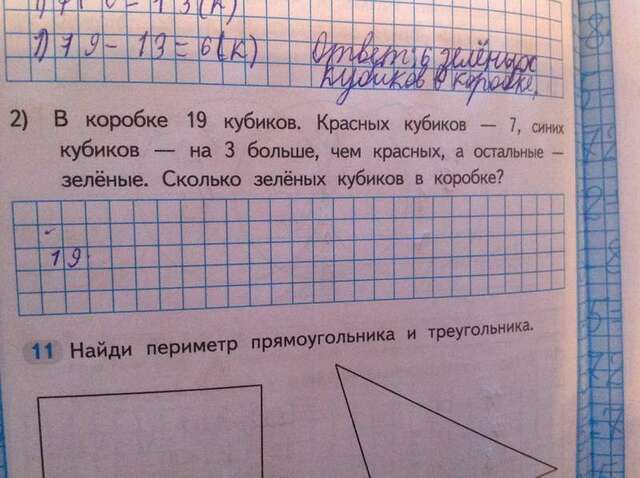 1) 7 9 - 13 = 6 (к) Ответ: 6 зелёных
кубиков в коробке.
2) В коробке 19 кубиков. Красных кубиков — 7, синих
кубиков — на 3 больше, чем красных, а остальные —
зелёные. Сколько зелёных кубиков в коробке?
19
11 Найди периметр прямоугольника и треугольника.